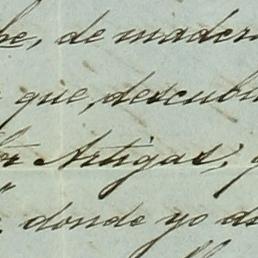 he, de mader
que, descubri
or Artigas,
donde yo de